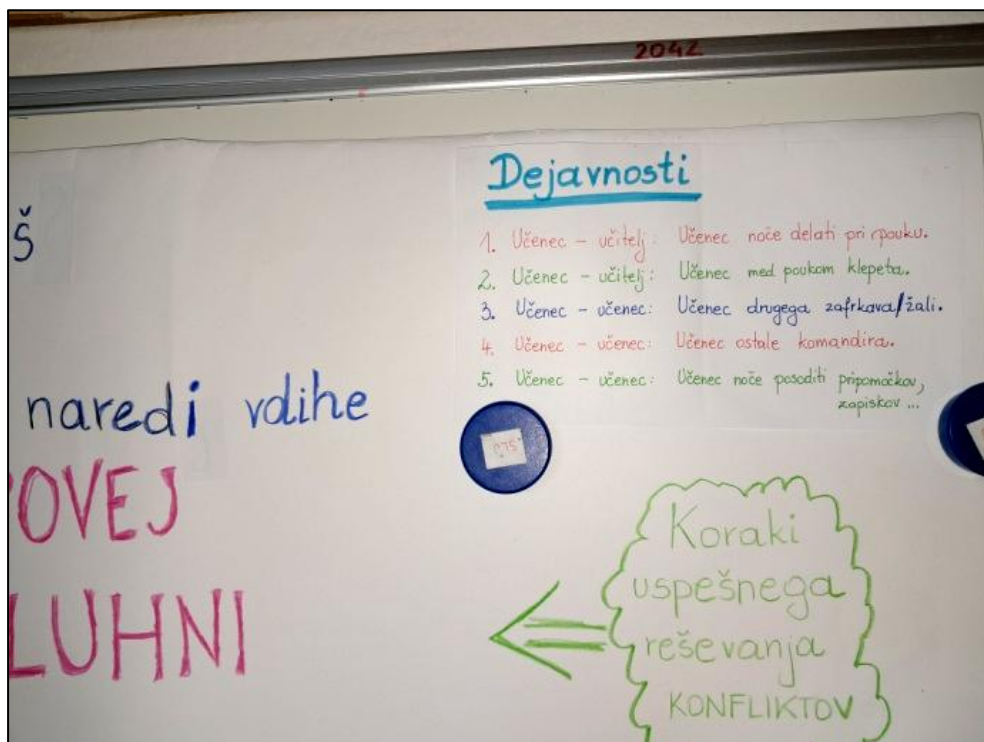 2042
Dejavnosti
1. Učenec - učitelj: Učenec noče delati pri pouku.
2. Učenec - učitelj: Učenec med poukom klepeta.
3. Učenec - učenec: Učenec drugega zafrkava/žali.
4. Učenec - učenec: Učenec ostale komandira.
5. Učenec - učenec: Učenec noče posoditi pripomočkov,
zapiskov ...
Š
naredi vdihe
OVEJ
LUHNI
Koraki
uspešnega
reševanja
KONFLIKTOV